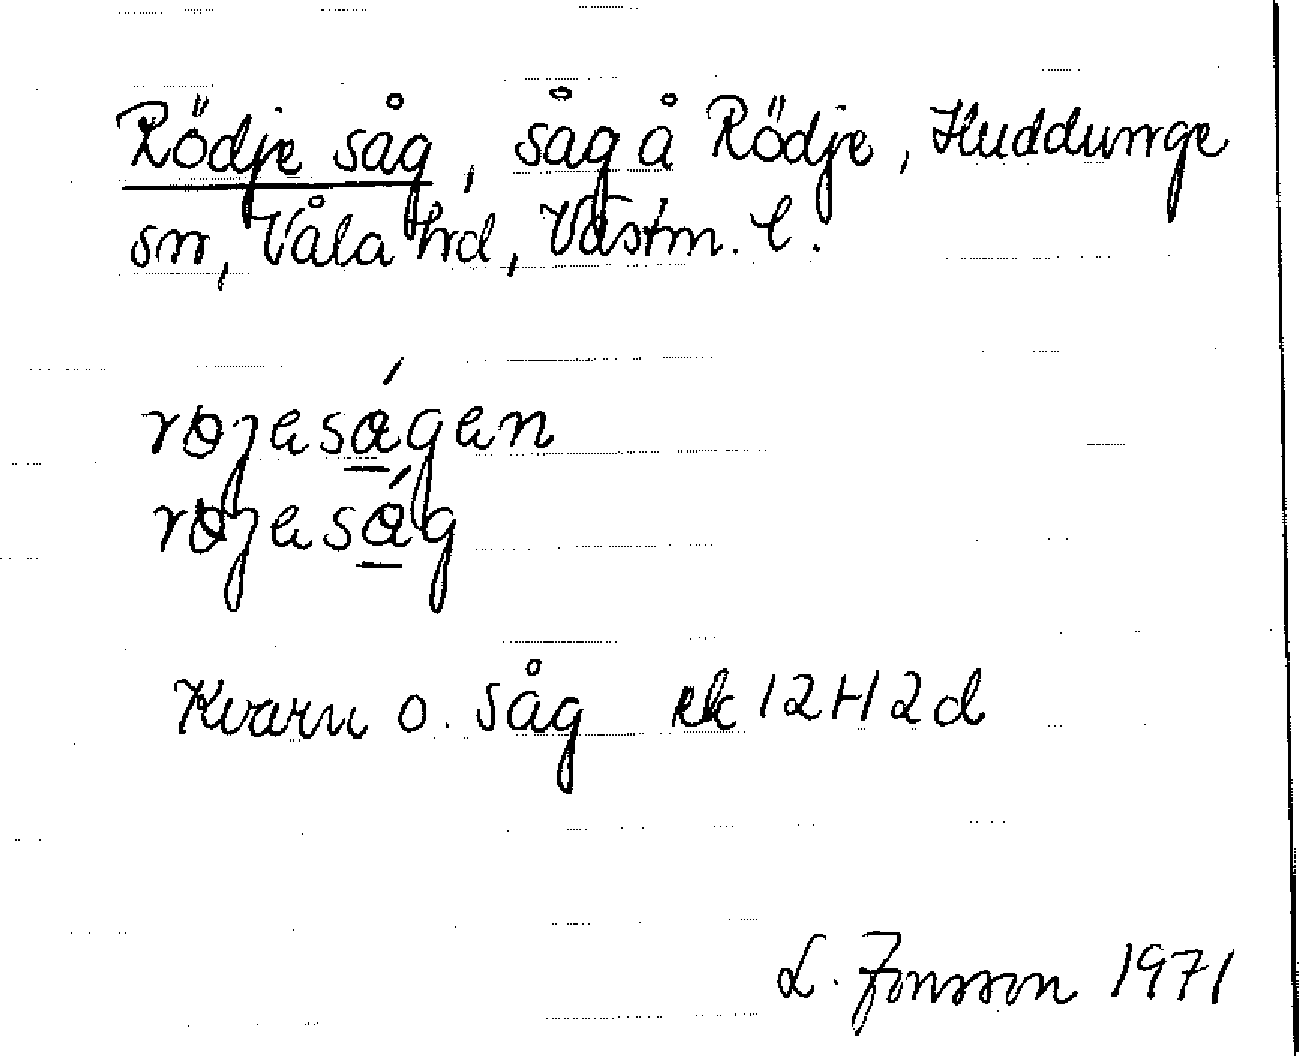 Rödje såg, såg å Rödje, Huddunge
sn, Våla hd, Västm. l.
røjesǻ̱gen
røjesǻ̱g
Kvarn o. såg ek 12H2d
L. Jonsson 1971